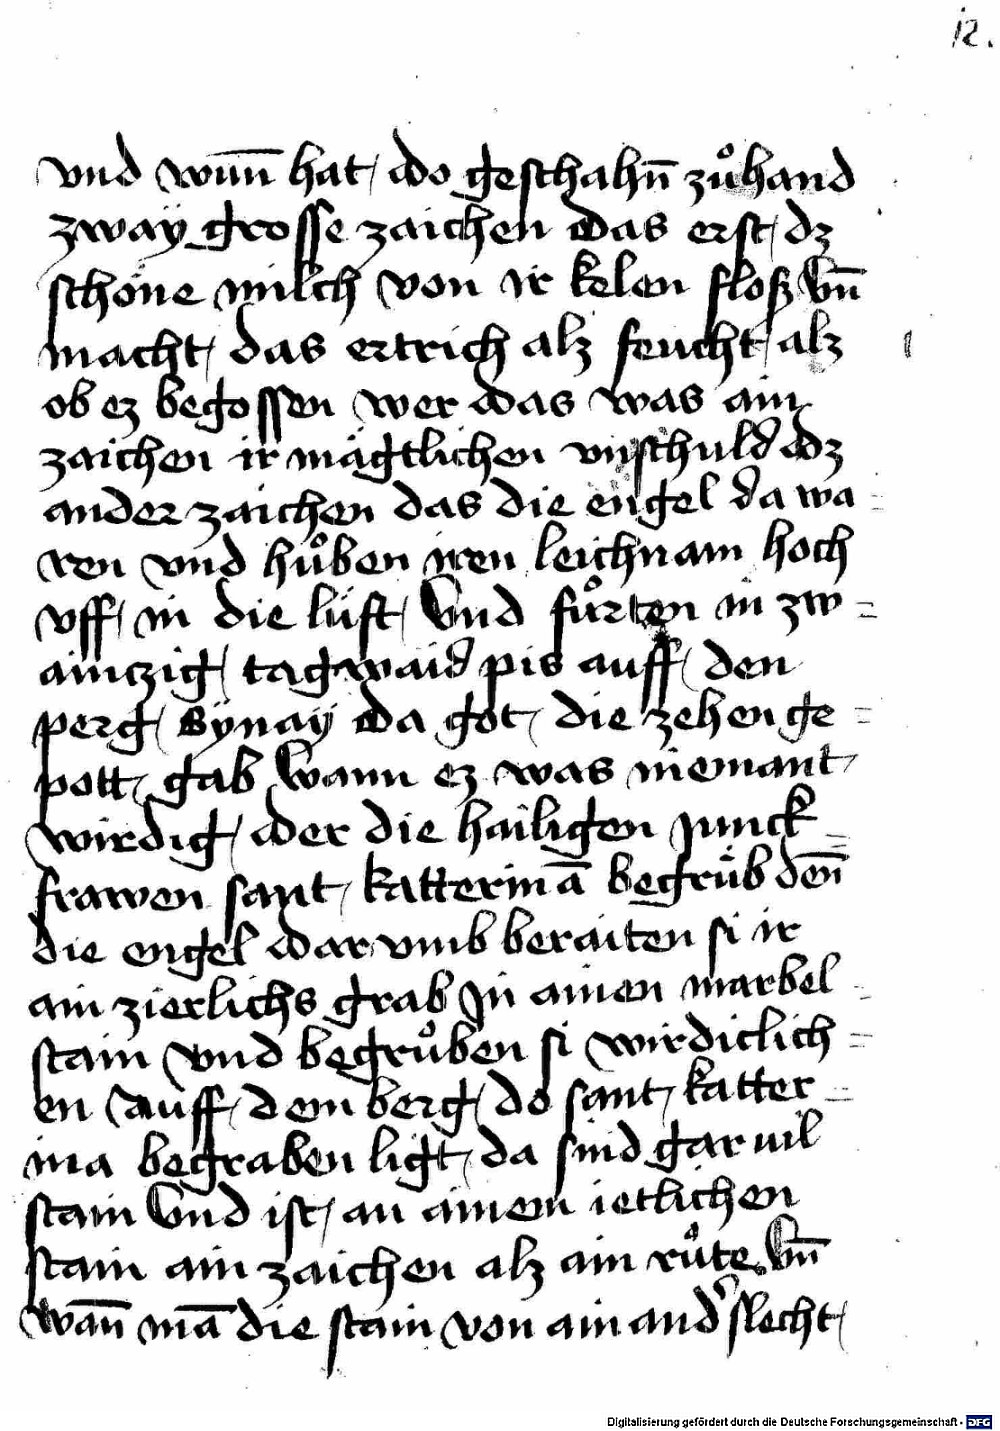 12.
vnd wun̄ hat / do geschahn̄ zůhand
zwaÿ grosse zaichen das erst / dz
schöne milch von ir kelen floß vn̄
macht / das ertrich alz feucht / alz
ob ez begossen wer das was ain
zaichen ir mägtlichen vnschuld dz
ander zaichen das die engel da wa =
ren vnd hůben iren leichnam hoch
vff / in die lüft / vnd fůrten in zw =
ainczig / tagwaid pis auff / den
perg / Sÿnaÿ da got / die zehen ge =
pott / gab wann ez was niemant /
wirdig / der die hailigen junck =
frawen sant / katterinā begrůb den̄
die engel dar vmb beraiten si ir
ain zierlichs grab Jn ainen marbel =
stain vnd begrůben si wirdiclich =
en auff / dem berg / do sant / katter =
ina begraben ligt / da sind gar uil
stain vnd ist / an ainem ietlichen
stain ain zaichen alz ain růte vn̄
wan̄ mā die stain von ain and͛ slecht /
Digitalisierung gefördert durch die Deutsche Forschungsgemeinschaft - DFG